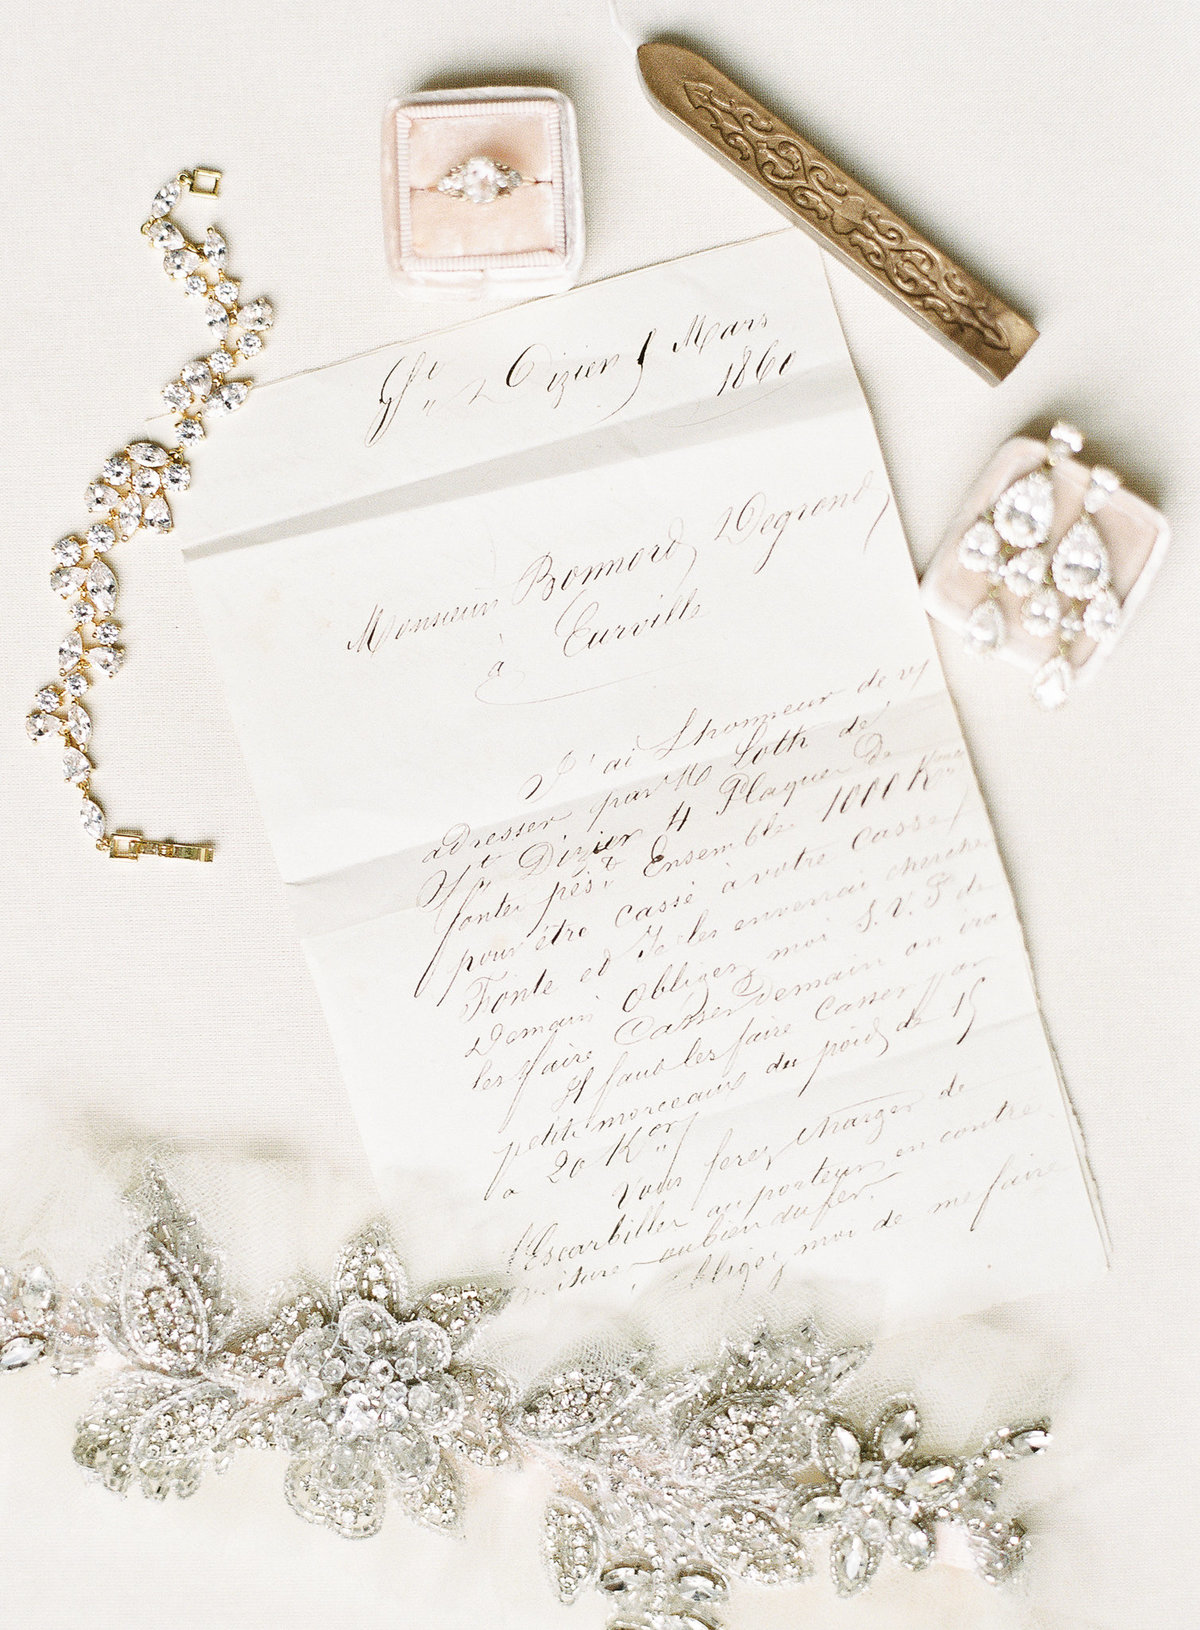 St Dizier 5 Mars
1860
Monsieur Bonnord Degrond
à Eurville
J'ai L'honneur de
adresser par Mr Loth de
St Dizier 4 Plaques De
fonte pest Ensemble 1000 Kos
pour être cassé a votre casse
Fonte et Je les enverrai chercher
Demain Obligez moi S. V. P. de
les faire Casser Demain on ira
Il faut les faire Casser par
petits morceaux du poid de 15
a 20 Kos
Vous ferez charger de
l'Escarbiller au porteur en contre
voiture ou bien du fer.
Obligez moi de me faire